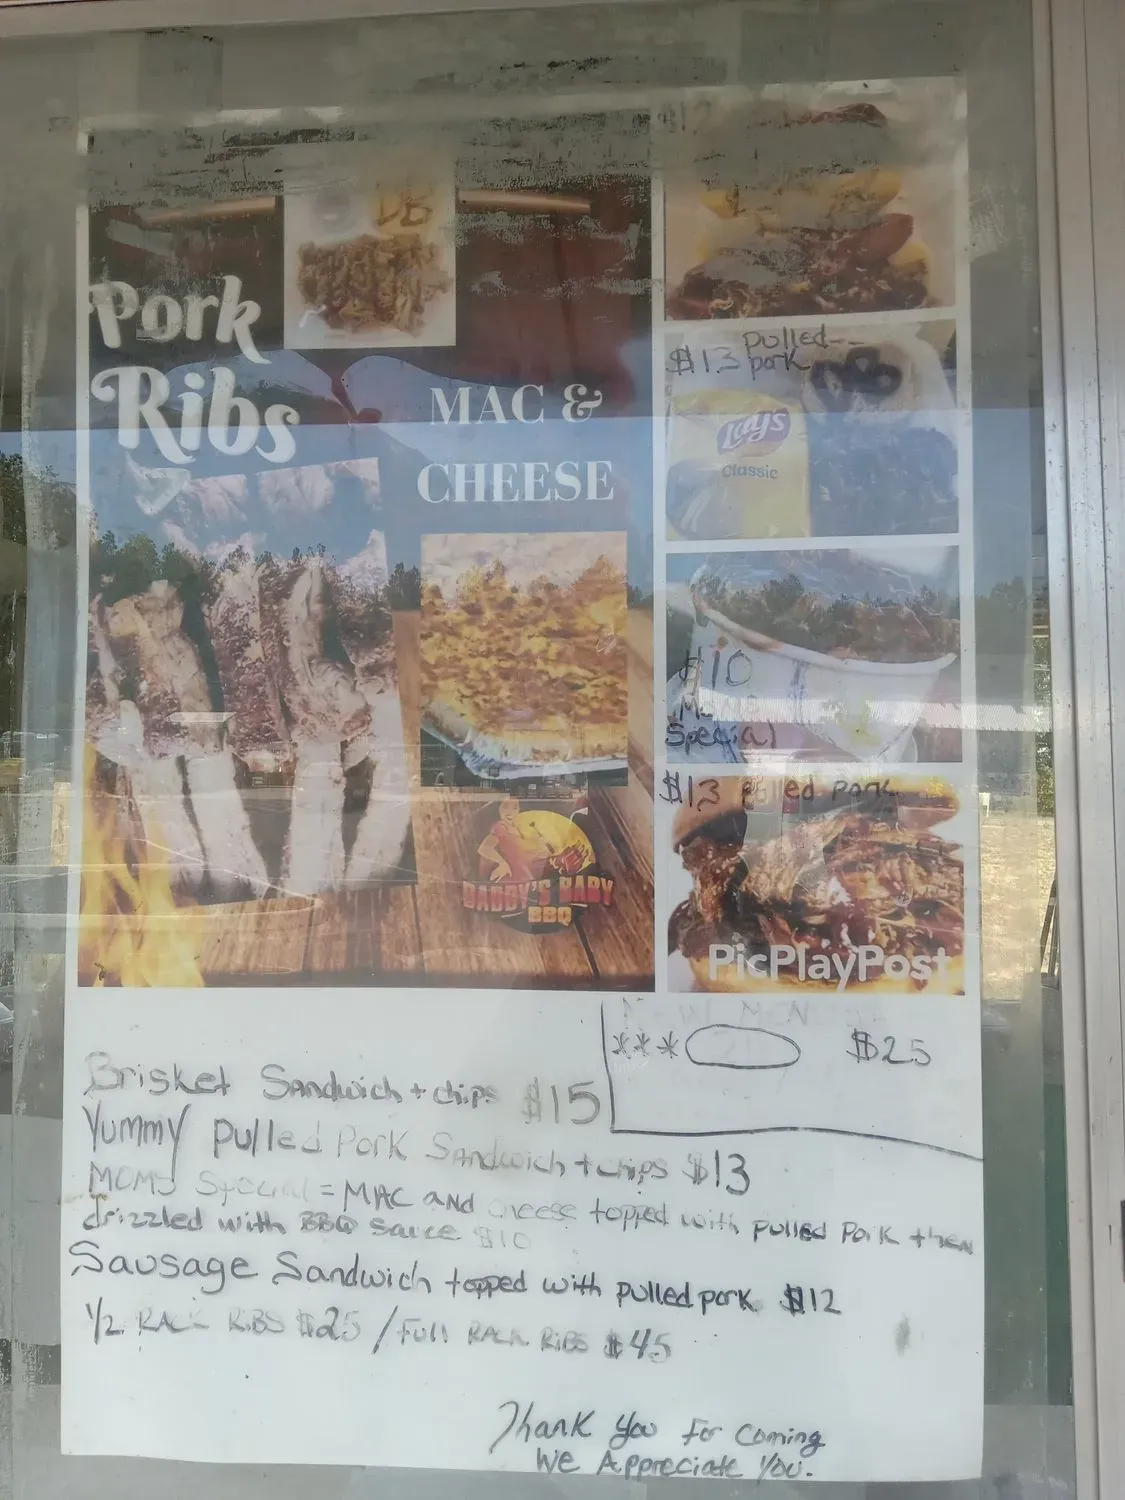 $12
DB
Pork
Ribs
MAC &
CHEESE
$13 pulled
pork
Lay's
Classic
$10
Special
$13 pulled pork
DADDY'S BABY
BBQ
PicPlayPost
*** $25
Brisket Sandwich + chips $15
Yummy pulled Pork Sandwich + chips $13
MOMS Special = MAC AND cheese topped with pulled Pork then
drizzled with BBQ sauce $10
Sausage Sandwich topped with pulled pork $12
1/2 RACK RIBS $25 / Full RACK RIBS $45
Thank You For Coming
We Appreciate You.